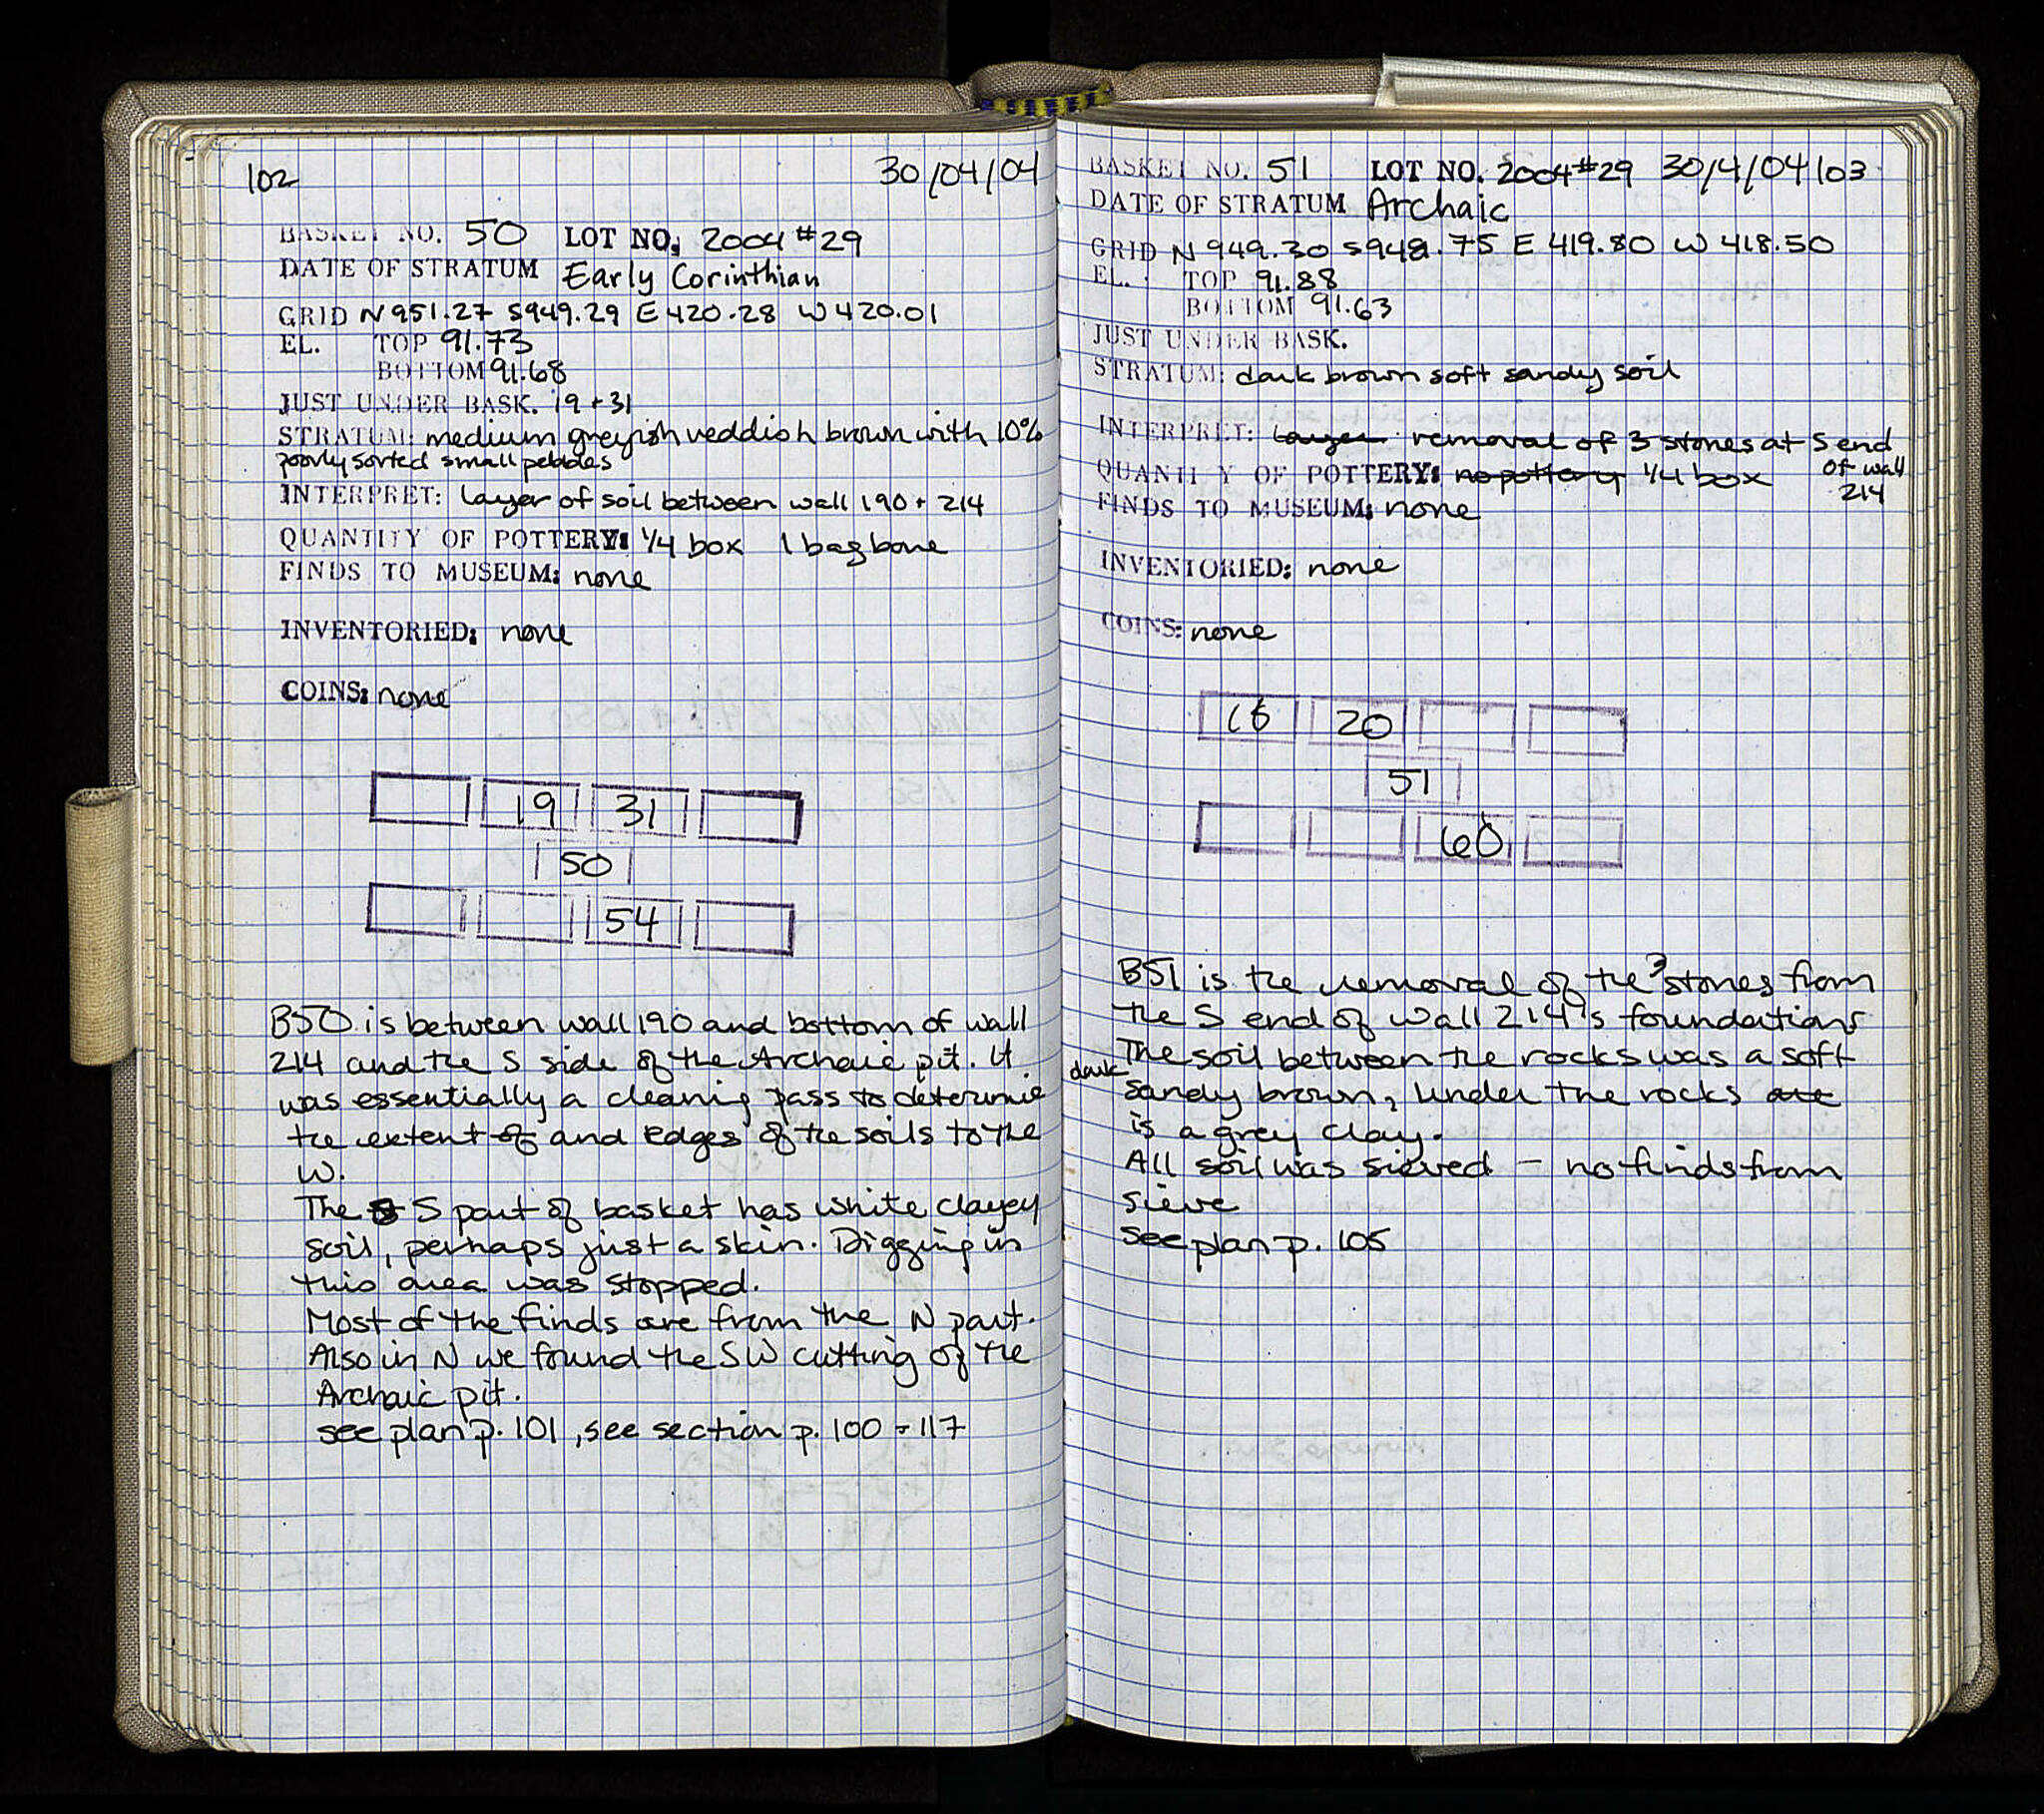 102 30/04/04
BASKET NO. 50 LOT NO. 2004 #29
DATE OF STRATUM Early Corinthian
GRID N 951.27 S949.29 E 420.28 W 420.01
EL. TOP 91.73
BOTTOM 91.68
JUST UNDER BASK. 19 + 31
STRATUM: medium greyish reddish brown with 10%
poorly sorted small pebbles
INTERPRET: layer of soil between wall 190 + 214
QUANTITY OF POTTERY: 1/4 box 1 bag bone
FINDS TO MUSEUM: none
INVENTORIED: none
COINS: none
19 31
50
54
B50 is between wall 190 and bottom of wall
214 and the S side of the Archaic pit. It
was essentially a cleaning pass to determine
the extent of and edges of the soils to the
W.
The S part of basket has white clayey
soil, perhaps just a skin. Digging in
this area was stopped.
Most of the finds are from the N part.
Also in N we found the SW cutting of the
Archaic pit.
see plan p. 101, see section p. 100 + 117
BASKET NO. 51 LOT NO. 2004 #29 30/4/04 103
DATE OF STRATUM Archaic
GRID N 949.30 S 948.75 E 419.80 W 418.50
EL. TOP 91.88
BOTTOM 91.63
JUST UNDER BASK.
STRATUM: dark brown soft sandy soil
INTERPRET: layer removal of 3 stones at S end
of wall
214
QUANTITY OF POTTERY: no pottery 1/4 box
FINDS TO MUSEUM: none
INVENTORIED: none
COINS: none
16 20
51
60
B51 is the removal of the 3 stones from
the S end of Wall 214's foundations
The soil between the rocks was a soft
dark sandy brown, under the rocks are
is a grey clay.
All soil was sieved – no finds from
sieve
see plan p. 105